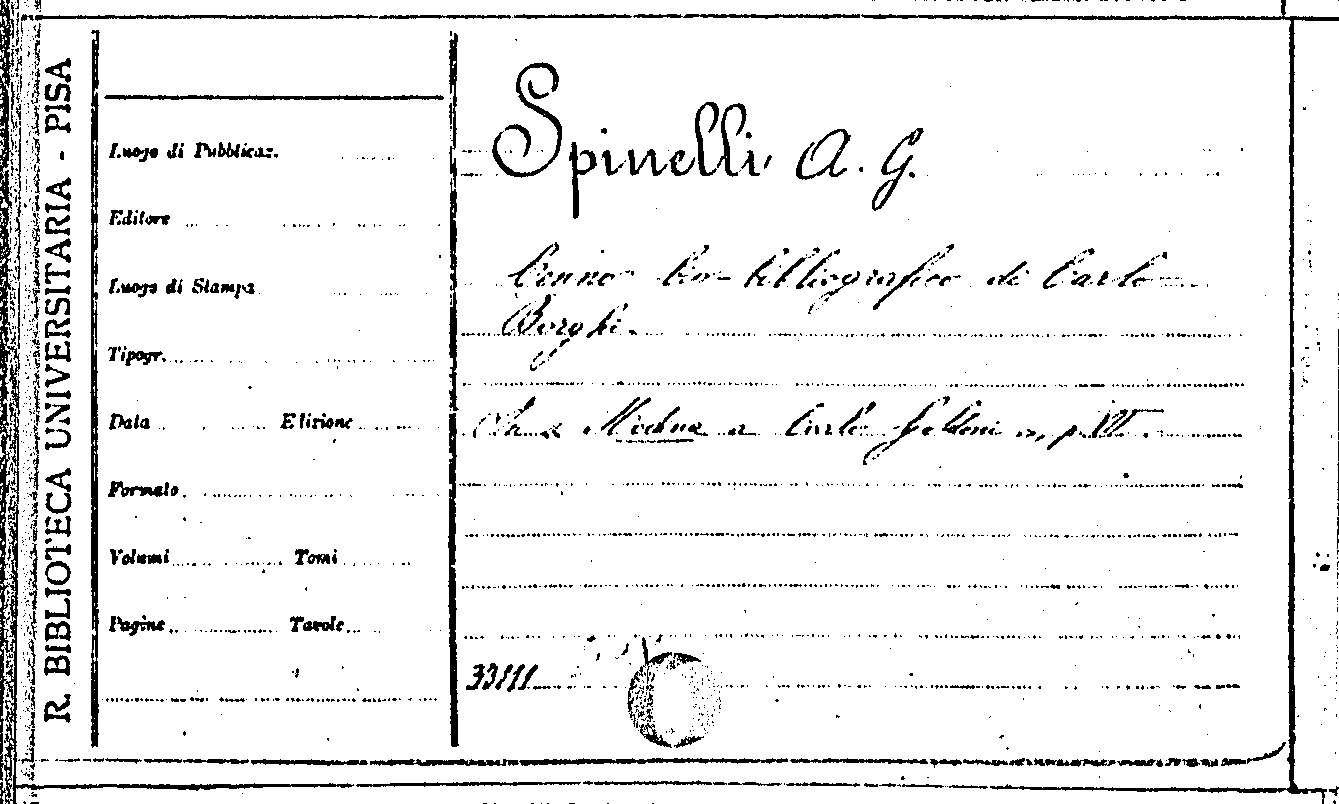 R. BIBLIOTECA UNIVERSITARIA - PISA
Luogo di Pubblicaz.
Editore
Luogo di Stampa
Tipogr.
Data Edizione
Formato
Volumi Tomi
Pagine Tavole
Spinelli A. G.
Cenno bio-bibliografico di Carlo
Borghi.
Modena a Carlo Goldoni
33111